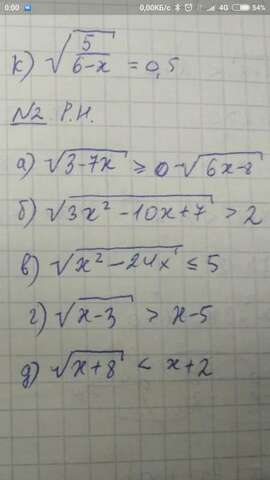 0:00 0,00КБ/с 4G 54%
к) √(5/(6-x)) = 0,5
№2 Р.Н.
а) √(3-7x) ≥ 0-√(6x-8)
б) √(3x² -10x+7) > 2
в) √(x² -24x) ≤ 5
г) √(x-3) > x-5
д) √(x+8) < x+2